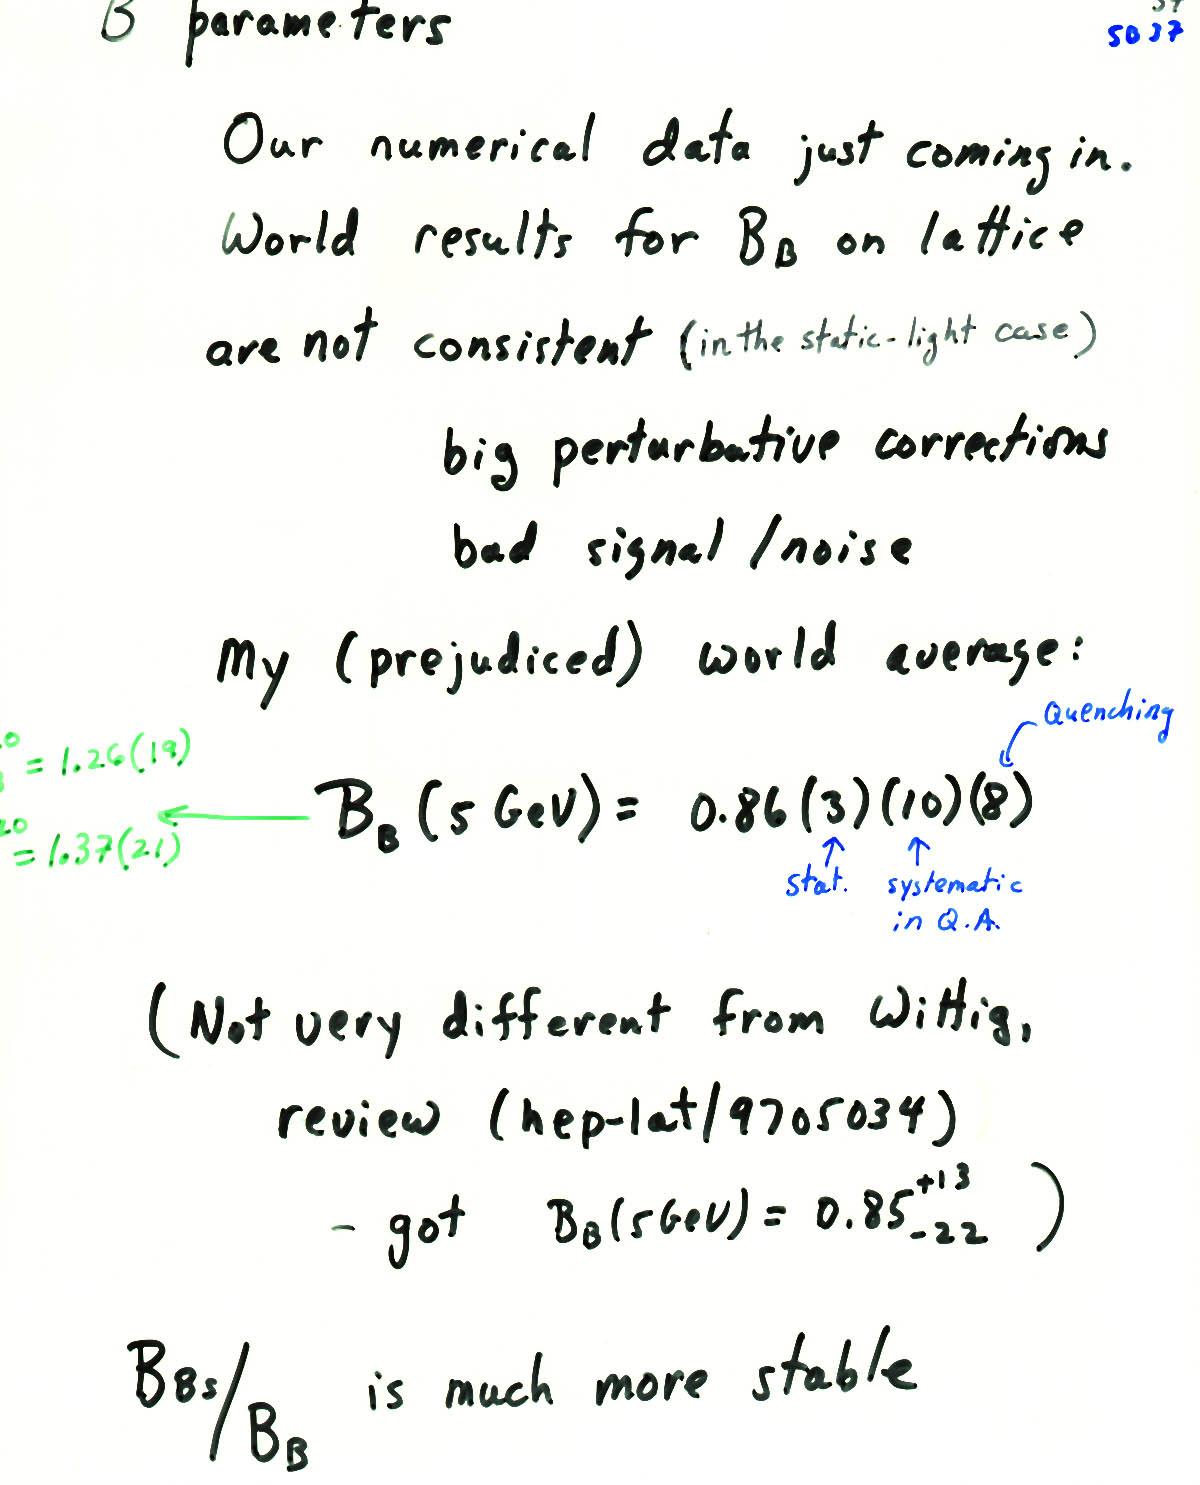 B parameters
5037
Our numerical data just coming in.
World results for B_B on lattice
are not consistent (in the static-light case)
big perturbative corrections
bad signal/noise
My (prejudiced) world average:
Quenching
= 1.26(19)
B_B(5 GeV) = 0.86(3)(10)(8)
= 1.37(21)
stat. systematic
in Q.A.
(Not very different from Wittig,
review (hep-lat/9705034)
- got B_B(5 GeV) = 0.85 +13 -22 )
B_Bs/B_B is much more stable